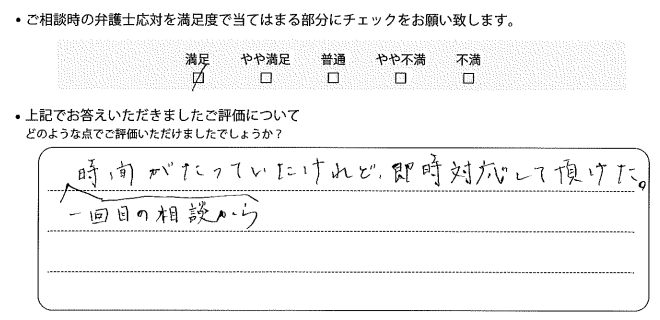 ・ご相談時の弁護士応対を満足度で当てはまる部分にチェックをお願い致します。
満足 やや満足 普通 やや不満 不満
・上記でお答えいただきましたご評価について
どのような点でご評価いただけましたでしょうか？
時間がたっていたけれど、即時対応して頂けた。
一回目の相談から